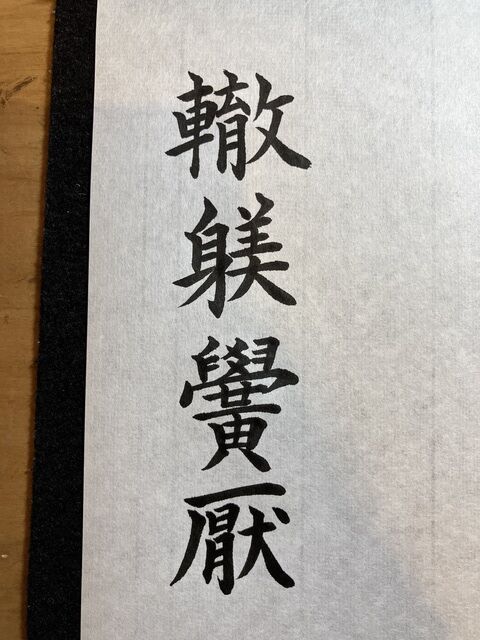 轍躾黌厭